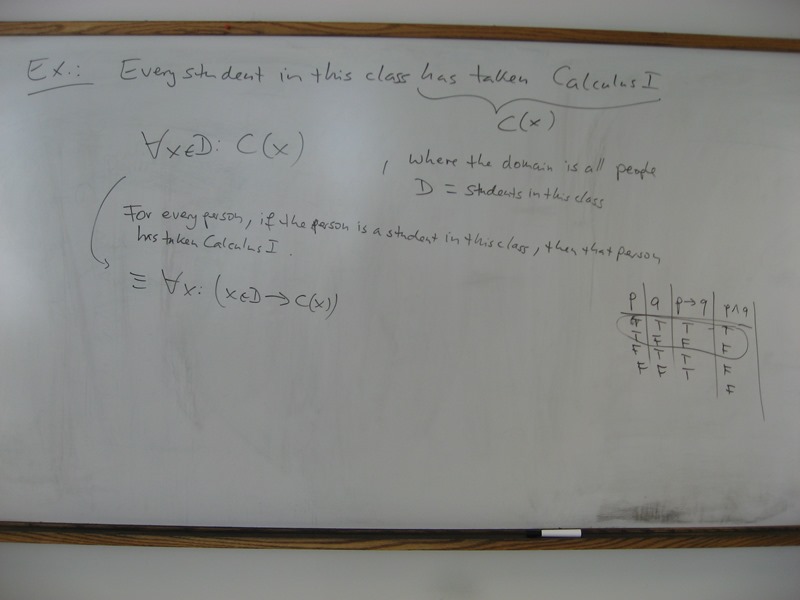 Ex.: Every student in this class has taken Calculus I
C(x)
∀x∈D: C(x)
, where the domain is all people
D = students in this class
For every person, if the person is a student in this class, then that person
has taken Calculus I.
≡ ∀x: (x∈D → C(x))
p q p→q p∧q
T T T T
T F F F
F T T F
F F T F